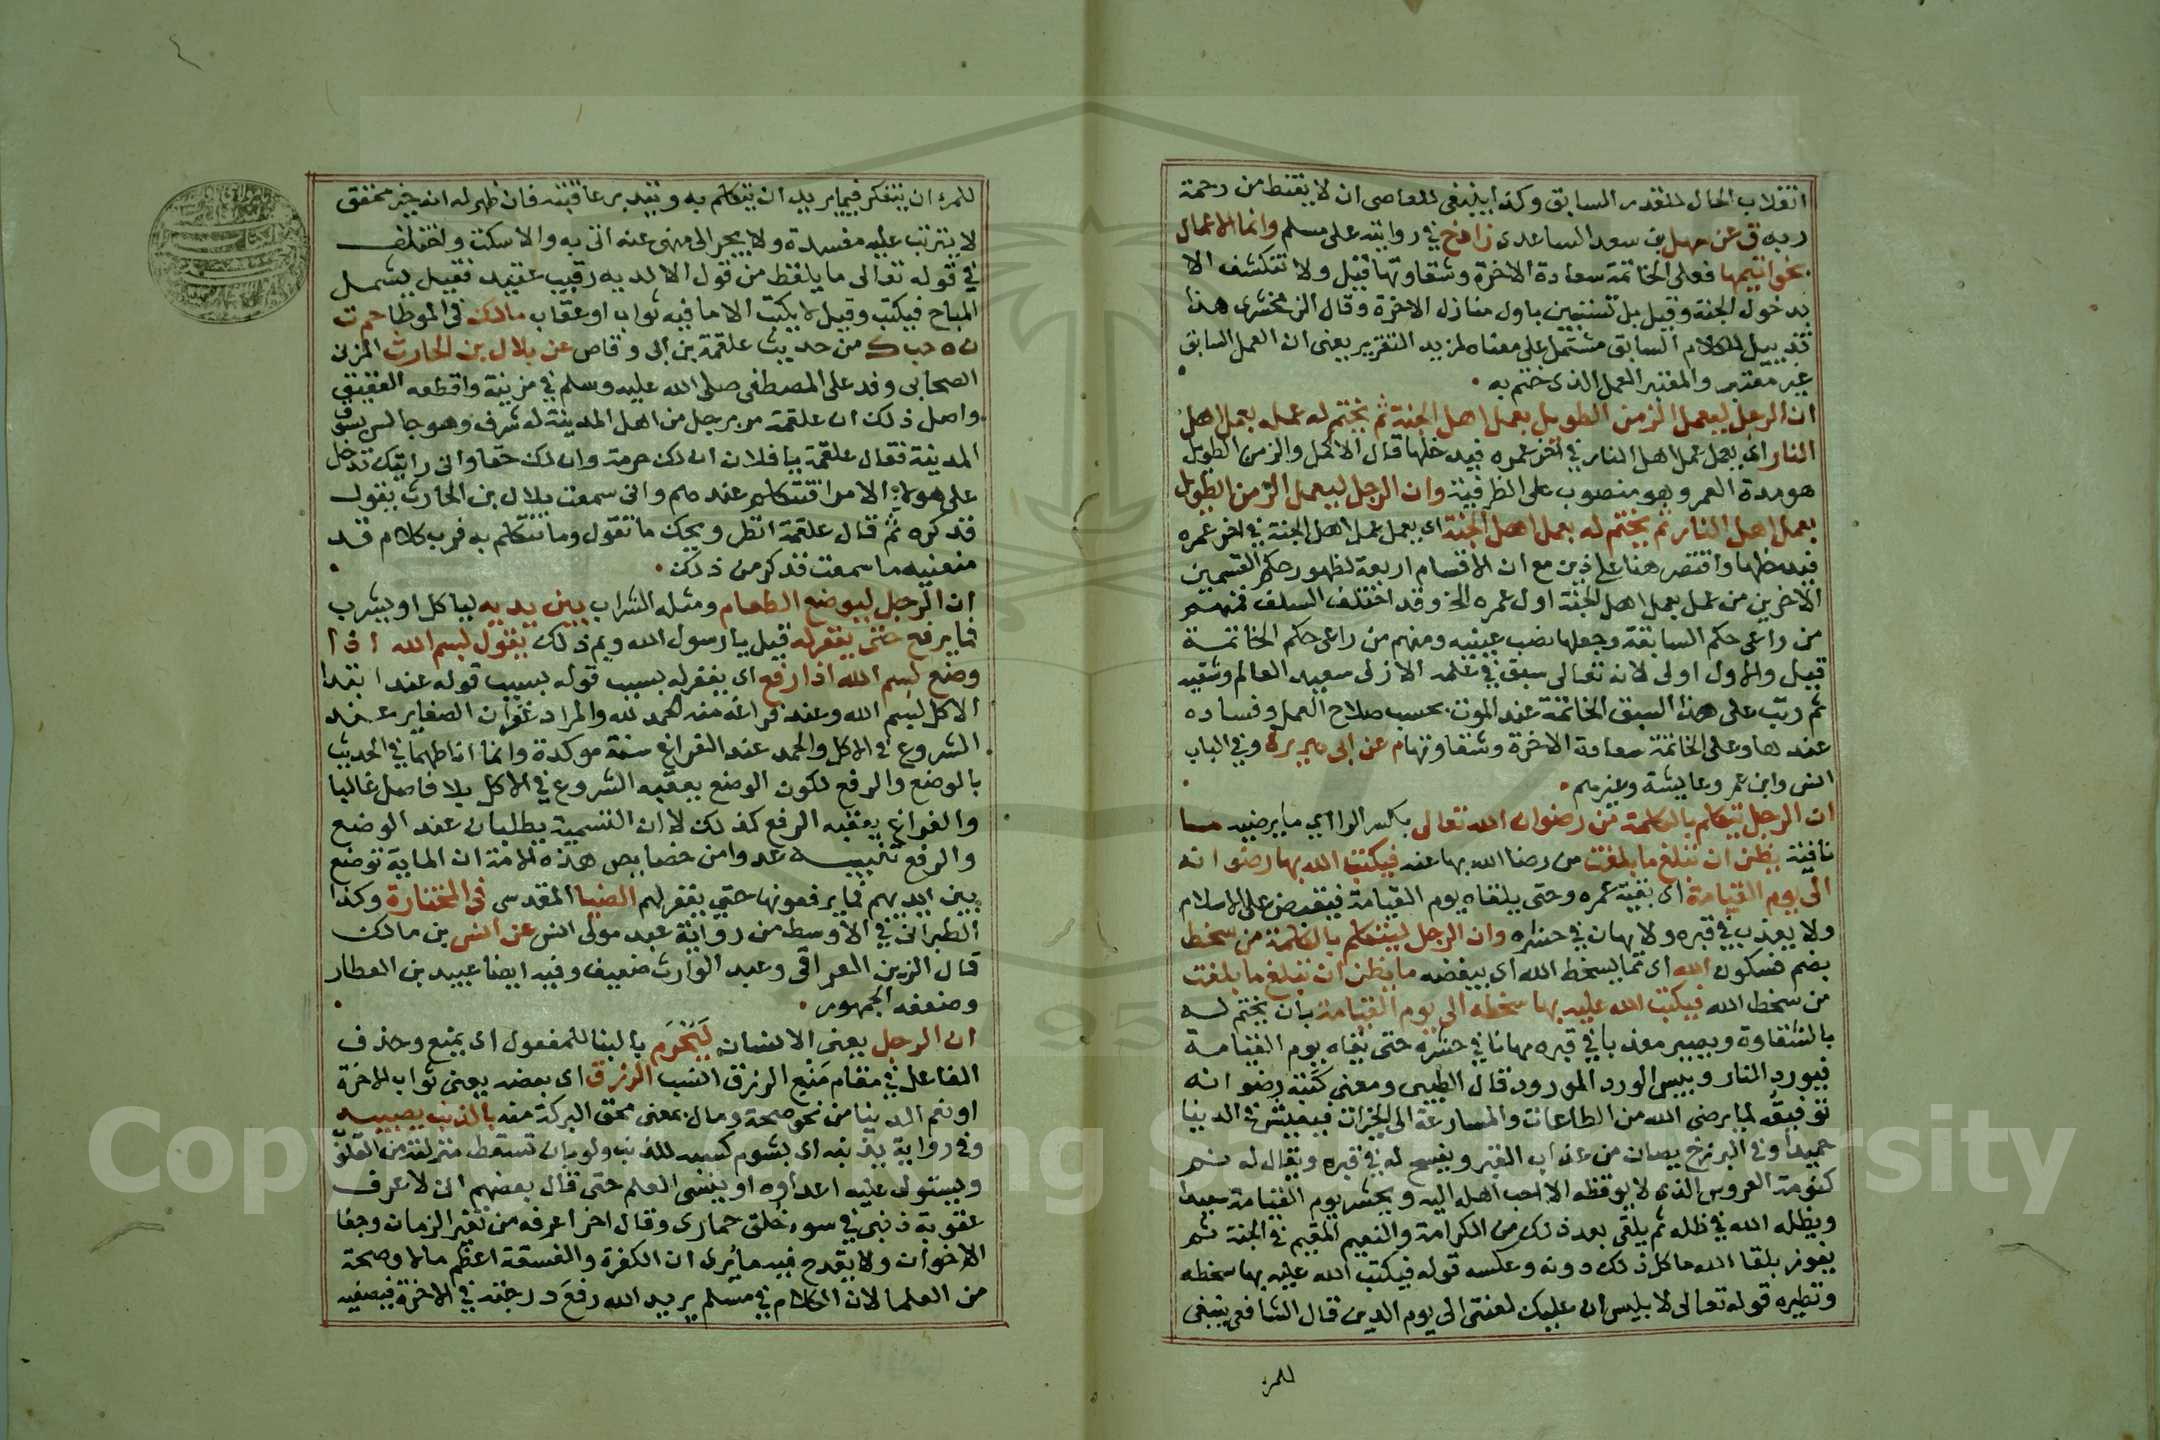 انقلاب الحال للقدر السابق وكذا ينبغي للعاصي ان لا يقنط من رحمة
ربه ق عن سهل بن سعد الساعدي زاد خ في روايته على مسلم وانما الاعمال
بخواتيمها فعلى الخاتمة سعادة الاخرة وشقاوتها قيل ولا تنكشف الا
بدخول الجنة وقيل بل تستبين باول منازل الاخرة وقال الزمخشري هذا
تذييل للكلام السابق مشتمل على معناه لمزيد التقرير يعني ان العمل السابق
غير معتبر والمعتبر العمل الذي ختم به
ان الرجل ليعمل الزمن الطويل بعمل اهل الجنة ثم يختم له عمله بعمل اهل
النار اي يعمل عمل اهل النار في اخر عمره فيدخلها قال الاكمل والزمن الطويل
هو مدة العمر وهو منصوب على الظرفية وان الرجل ليعمل الزمن الطويل
بعمل اهل النار ثم يختم له بعمل اهل الجنة اي يعمل عمل اهل الجنة في اخر عمره
فيدخلها واقتصر هنا على ذين مع ان الاقسام اربعة لظهور حكم القسمين
الاخرين من عمل بعمل اهل الجنة اول عمره الخ وقد اختلف السلف فمنهم
من راعى حكم السابقة وجعلها نصب عينيه ومنهم من راعى حكم الخاتمة
قيل والاول اولى لانه تعالى سبق في علمه الازلي سعيد العالم وشقيه
ثم رتب على هذا السبق الخاتمة عند الموت بحسب صلاح العمل وفساده
عندها وعلى الخاتمة سعادة الاخرة وشقاوتها م عن ابي هريرة وفي الباب
انس وابن عمر وعايشة وغيرهم
ان الرجل ليتكلم بالكلمة من رضوان الله تعالى بكسر الراء اي ما يرضيه ما
نافية يظن ان تبلغ ما بلغت من رضا الله بها عنه فيكتب الله بها رضوانه
الى يوم القيامة اي بقية عمره وحتى يلقاه يوم القيامة فيقبض على الاسلام
ولا يعذب في قبره ولا يهان في حشره وان الرجل ليتكلم بالكلمة من سخط
بضم فسكون الله اي مما يسخط الله اي يبغضه ما يظن ان تبلغ ما بلغت
من سخط الله فيكتب الله عليه بها سخطه الى يوم القيامة بان يختم له
بالشقاوة ويصير معذبا في قبره مهانا في حشره حتى يلقاه يوم القيامة
فيورد النار وبيس الورد المورود قال الطيبي ومعنى كتبه رضوانه
توفيقه لما يرضي الله من الطاعات والمسارعة الى الخيرات فيعيش في الدنيا
حميدا وفي البرزخ يصان من عذاب القبر ويفسح له في قبره ويقال له نم
كنومة العروس الذي لا يوقظه الا احب اهله اليه ويحشر يوم القيامة سعيدا
ويظله الله في ظله ثم يلقى بعد ذلك من الكرامة والنعيم المقيم في الجنة ثم
يفوز بلقا الله ما كل ذلك دونه وعكسه قوله فيكتب الله عليه بها سخطه
ونظيره قوله تعالى لابليس ان عليك لعنتي الى يوم الدين قال الشافعي ينبغي
للمرء
للمرء ان يتفكر فيما يريد ان يتكلم به ويتدبر عاقبته فان ظهر له انه خير محقق
لا يترتب عليه مفسدة ولا يجر الى منهي عنه اتى به والا سكت واختلف
في قوله تعالى ما يلفظ من قول الا لديه رقيب عتيد فقيل يشمل
المباح فيكتب وقيل لا يكتب الا ما فيه ثواب او عقاب مالك في الموطا حم ت
ن ه حب ك من حديث علقمة بن ابي وقاص عن بلال بن الحارث المزني
الصحابي وفد على المصطفى صلى الله عليه وسلم في مزينة واقطعه العقيق
واصل ذلك ان علقمة مر برجل من اهل المدينة له شرف وهو جالس بسوق
المدينة فقال علقمة يا فلان ان لك حرمة وان لك حقا واني رايتك تدخل
على هولاء الامرا فتتكلم عندهم واني سمعت بلال بن الحارث يقول
فذكره ثم قال علقمة انظر ويحك ما تقول وما تتكلم به فرب كلام قد
منعنيه ما سمعت فذكر من ذلك
ان الرجل ليوضع الطعام ومثله الشراب بين يديه لياكل او يشرب
فما يرفع حتى يغفر له قيل يا رسول الله وبم ذلك يقول بسم الله اذا
وضع بسم الله اذا رفع اي يغفر له بسبب قوله عند ابتدا
الاكل بسم الله وعند فراغه منه الحمد لله والمراد غفران الصغاير عند
الشروع في الاكل والحمد عند الفراغ سنة موكدة وانما اناطهما في الحديث
بالوضع والرفع لكون الوضع يعقبه الشروع في الاكل بلا فاصل غالبا
والفراغ يعقبه الرفع كذلك لا ان التسمية يطلبان عند الوضع
والرفع تنبيه عدوا من خصايص هذه الامة ان المايدة توضع
بين ايديهم فما يرفعونها حتى يغفر لهم الضيا المقدسي في المختارة وكذا
الطبراني في الاوسط من رواية عبد مولى انس عن انس بن مالك
قال الزين العراقي وعبد الوارث ضعيف وفيه ايضا عبيد بن العطار
وضعفه الجمهور
ان الرجل يعني الانسان ليحرم بالبنا للمفعول اي يمنع وحذف
الفاعل في مقام منع الرزق انسب الرزق اي بعضه يعني ثواب الاخرة
او نعم الدنيا من نحو صحة ومال بمعنى محق البركة منه بالذنب يصيبه
وفي رواية بذنبه اي بشوم كسبه للذنب ولو بان تسقط منزلته من القلوب
ويستولي عليه اعداوه او ينسى العلم حتى قال بعضهم اني لاعرف
عقوبة ذنبي في سوء خلق حماري وقال اخر اعرفه من تغير الزمان وجفا
الاخوان ولا يقدح فيه ما يرى ان الكفرة والفسقة اعظم مالا وصحة
من العلما لان الكلام في مسلم يريد الله رفع درجته في الاخرة فيصفيه
Copyright © King Saud University